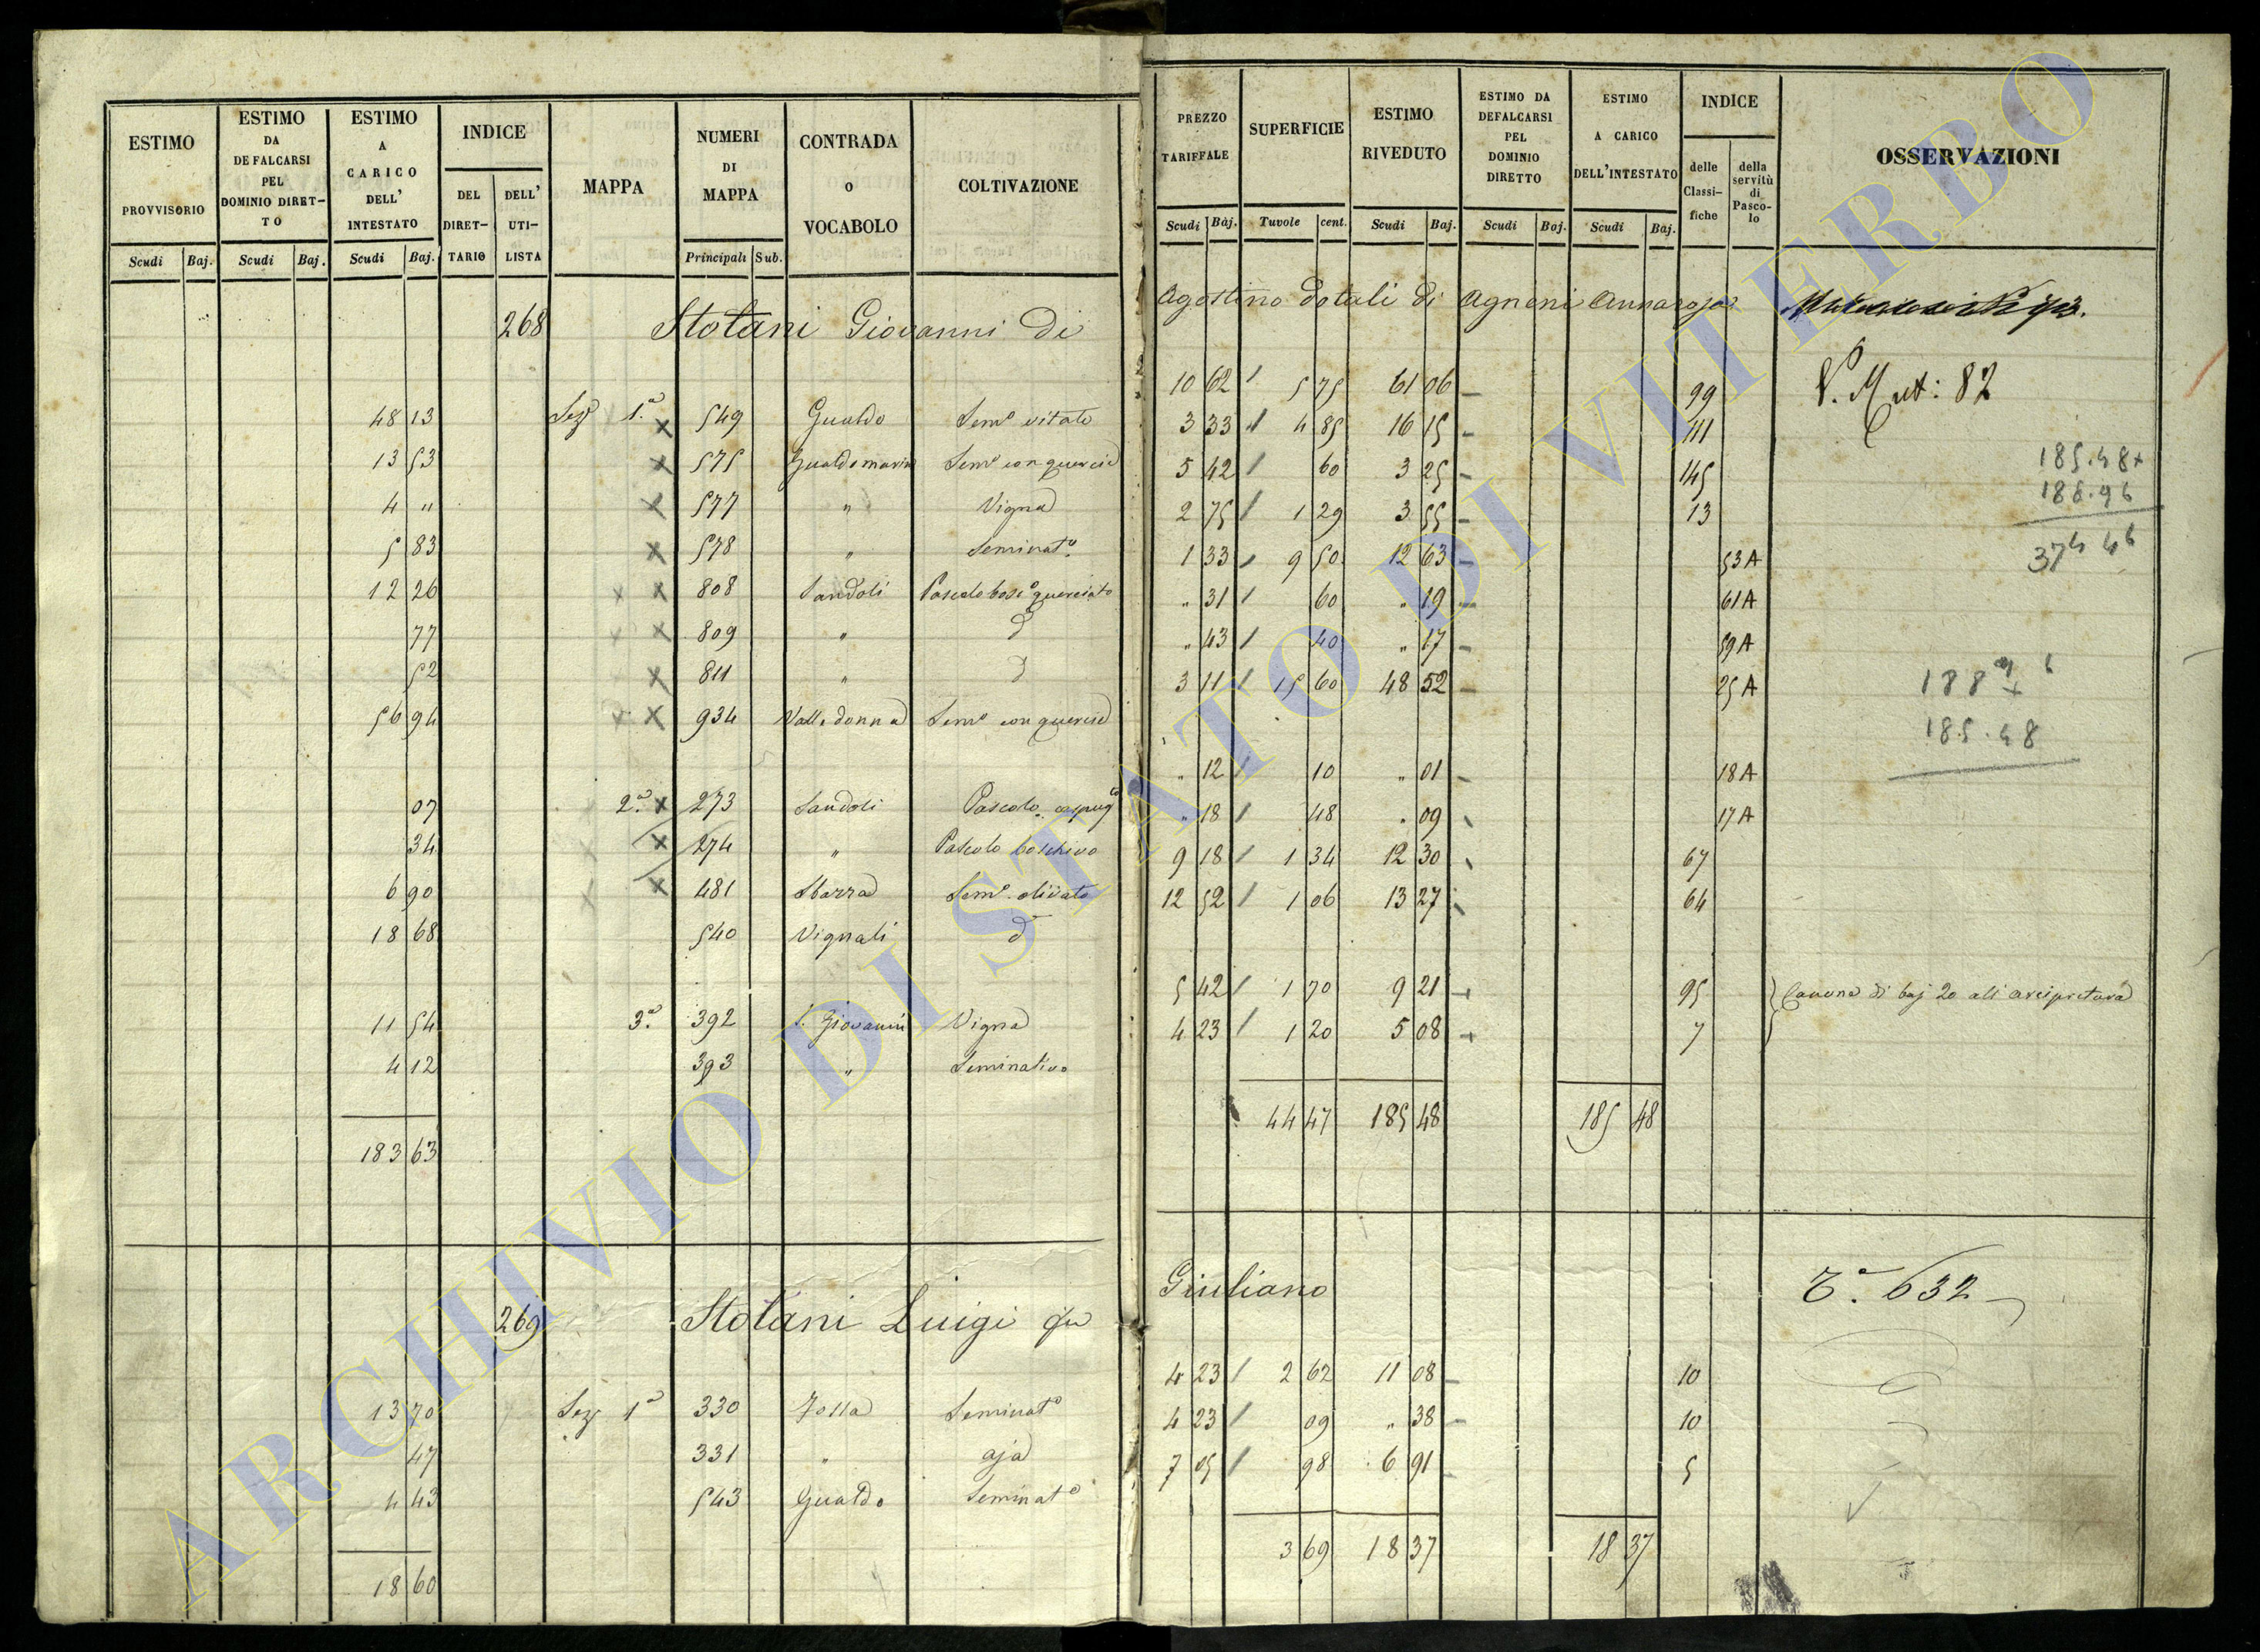 ESTIMO PROVVISORIO Scudi Baj.
ESTIMO DA DEFALCARSI PEL DOMINIO DIRET-TO Scudi Baj.
ESTIMO A CARICO DELL' INTESTATO Scudi Baj.
INDICE DEL DIRET-TARIO DELL' UTI-LISTA
MAPPA
NUMERI DI MAPPA Principali Sub.
CONTRADA o VOCABOLO
COLTIVAZIONE
268 Stolani Giovanni di
48 13 Sez 1.a 549 Gualdo Sem.o vitato
13 53 575 Sem.o con quercie
4 " 577 " Vigna
5 83 578 " Seminat.o
12 26 808 Sandoli Pascolo bosc.o querciato
77 809 " d
52 811 " d
56 94 934 Valle donna Sem.o con quercie
07 2.a 273 Sandoli Pascolo cespug.to
34 274 " Pascolo boschivo
6 90 481 Sbarra Sem.o olivato
18 68 540 Vignali d
11 54 3.a 392 S. Giovanni Vigna
4 12 393 " Seminativo
183 63
269 Stolani Luigi qu
13 70 Sez 1a 330 Zolla Seminat.o
47 331 " aja
4 43 543 Gualdo Seminat.o
18 60
PREZZO TARIFFALE Scudi Baj.
SUPERFICIE Tavole cent.
ESTIMO RIVEDUTO Scudi Baj.
ESTIMO DA DEFALCARSI PEL DOMINIO DIRETTO Scudi Baj.
ESTIMO A CARICO DELL'INTESTATO Scudi Baj.
INDICE delle Classi-fiche della servitù di Pasco-lo
OSSERVAZIONI
Agostino dotali di Agneni Annarosa
10 62 5 75 61 06 99 V. Mut: 82
3 33 4 85 16 15 111
5 42 60 3 25 145 185.48+
2 75 1 29 3 55 13 188.96
1 33 9 50 12 63 53A 374 46
" 31 60 " 19 61A
" 43 40 " 17 59A
3 11 15 60 48 52 25A 188
185.48
" 12 10 " 01 18A
" 18 48 " 09 17A
9 18 1 34 12 30 67
12 52 1 06 13 27 64
5 42 1 70 9 21 95 Canone di baj 20 all arcipretura
4 23 1 20 5 08 7
44 47 185 48 185 48
Giuliano T.a 632
4 23 2 62 11 08 10
4 23 09 " 38 10
7 05 98 6 91 5
3 69 18 37 18 37
ARCHIVIO DI STATO DI VITERBO